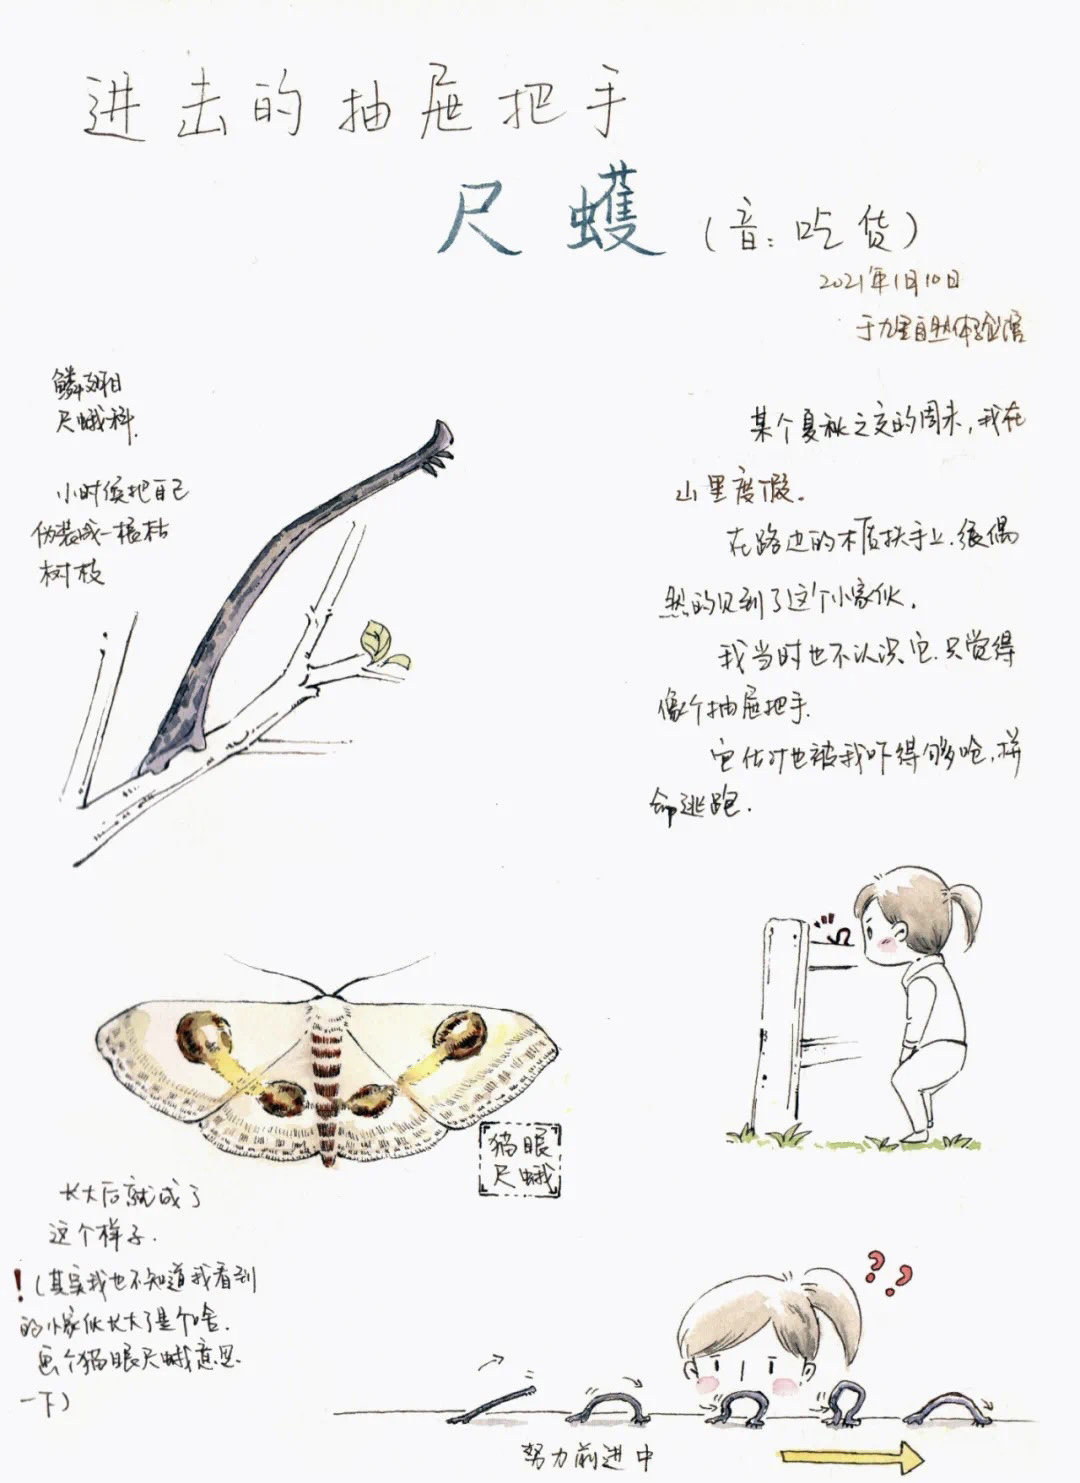 进击的抽屉把手
尺蠖(音:吃货)
2021年1月10日
于九里自然体验馆
鳞翅目
尺蛾科.
小时候把自己
伪装成一根枯
树枝
某个夏秋之交的周末,我在
山里度假.
在路边的木质扶手上.很偶
然的见到了这个小家伙.
我当时也不认识它.只觉得
像个抽屉把手.
它估计也被我吓得够呛,拼
命逃跑.
猫眼
尺蛾
长大后就成了
这个样子.
!(其实我也不知道我看到
的小家伙长大了是个啥.
画个猫眼尺蛾意思
一下)
??
努力前进中